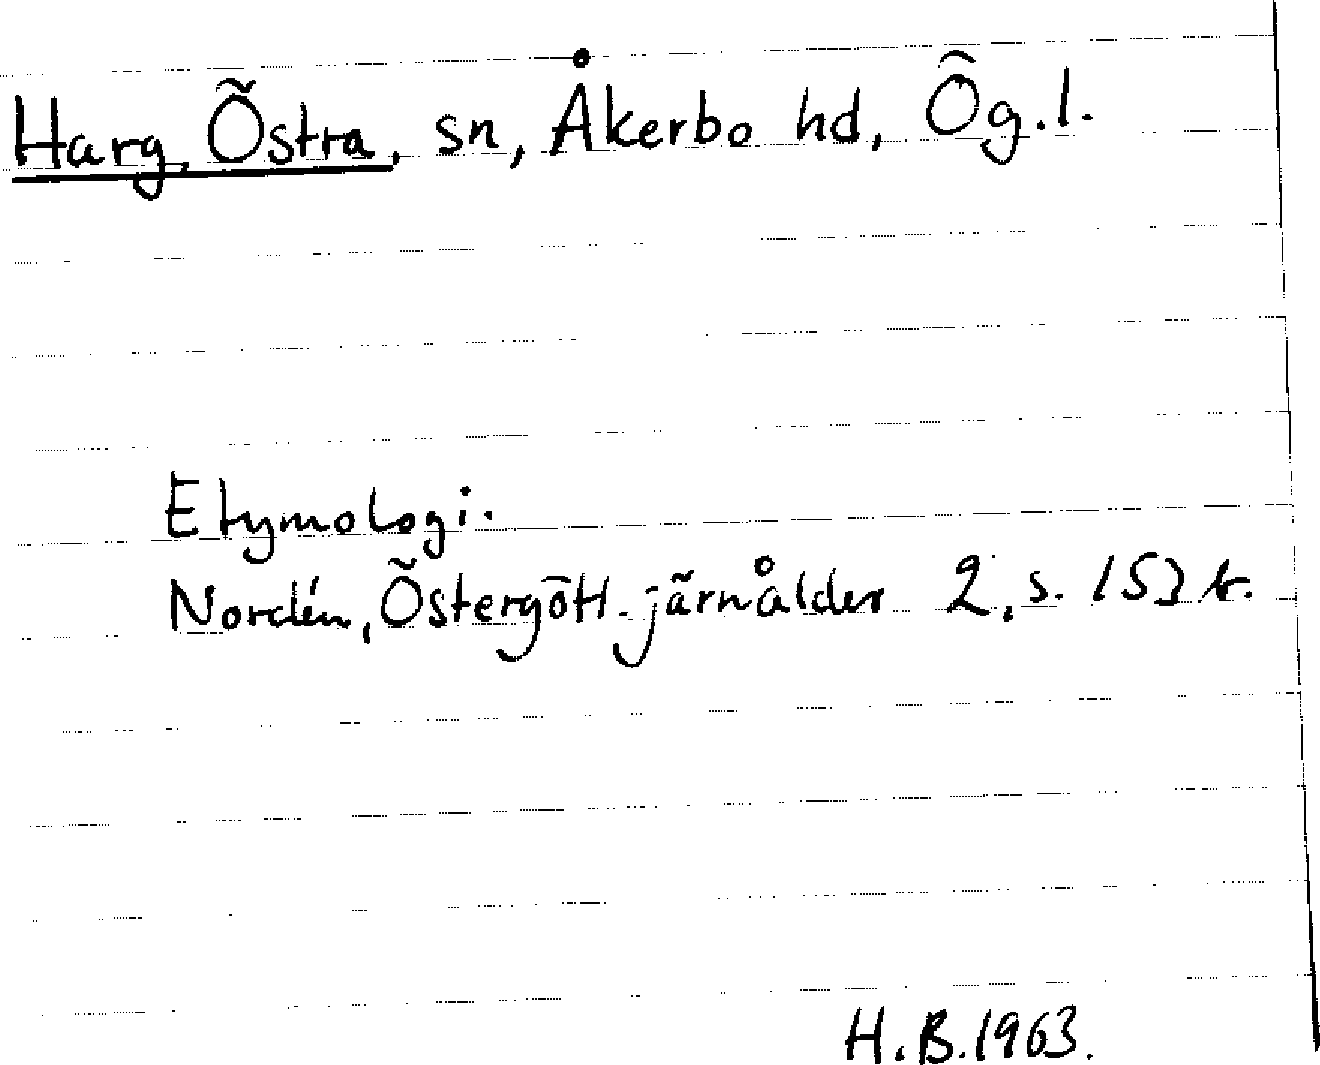 Harg, Östra, sn, Åkerbo hd, Ög.l.
Etymologi.
Nordén, Östergötl. järnålder 2, s.
H.B. 1963.